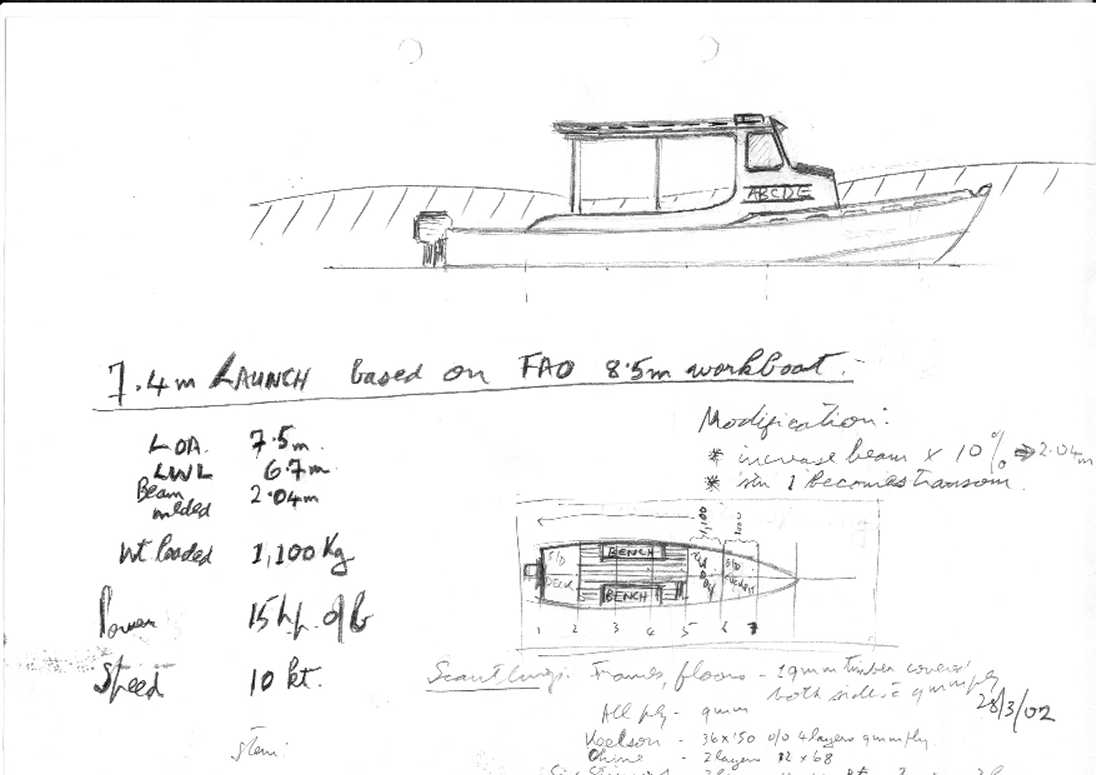 ABCDE
7.4m LAUNCH based on FAO 8.5m workboat.
LOA. 7.5m.
LWL 6.7m.
Beam molded 2.04m
Wt loaded 1,100 Kg
Power 15 h.p. o/b
Speed 10 kt.
Modification:
* increase beam x 10% ⇒ 2.04m
* stn 1 becomes transom.
1,100
BENCH
S/D
DECK
BENCH
1 2 3 4 5 6 7
Scantlings: Frames, floors - 19mm timber covered
both sides 9mm ply
28/3/02
All ply - 9mm
Keelson - 36x150 o/o 4 layers 9mm ply
Chine - 2 layers
Stem: